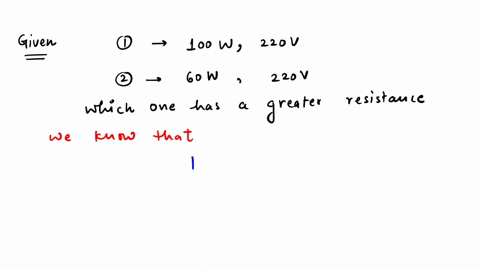 Given ① → 100 W, 220V
② → 60 W, 220V
which one has a greater resistance
we know that